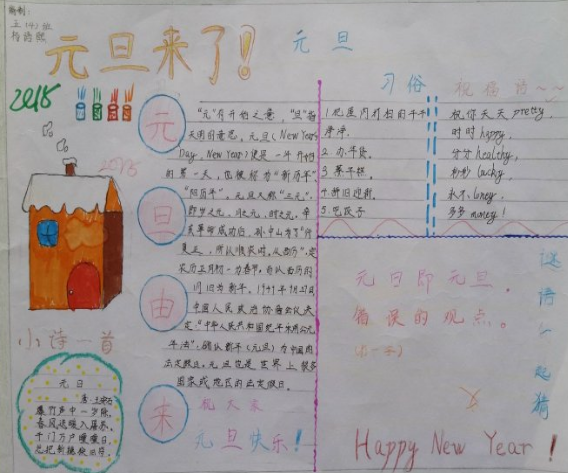 元旦来了!
元旦
2015
2015
元旦由来
"元"有开始之意，"旦"指
天明的意思。元旦（New Year's
Day, New Year）便是一年开始
的第一天，也被称为"新历年"
"阳历年"。元旦又称"三元"，
即岁之元、月之元、时之元。辛
亥革命成功后，孙中山为了"行
夏正，所以顺农时，从西历"，定
农历正月初一为春节，而以西历的
1月1日为新年。1949年9月27日
中国人民政治协商会议决
定："中华人民共和国纪年采用公元
年法"，
元旦也是世界上很多
国家或地区的法定假日。
祝大家
元旦快乐!
习俗
1.把屋内打扫的干干
净净。
2.办年货。
3.蒸年糕。
4.辞旧迎新。
5.包饺子
祝福语~~
祝你天天pretty.
时时happy,
分分healthy,
秒秒lucky,
永不
多多money!
元日即元旦。
错误的观点。
谜语一起猜
小诗一首
元日
爆竹声中一岁除，
春风送暖入屠苏。
千门万户曈曈日，
总把新桃换旧符。
Happy New Year!